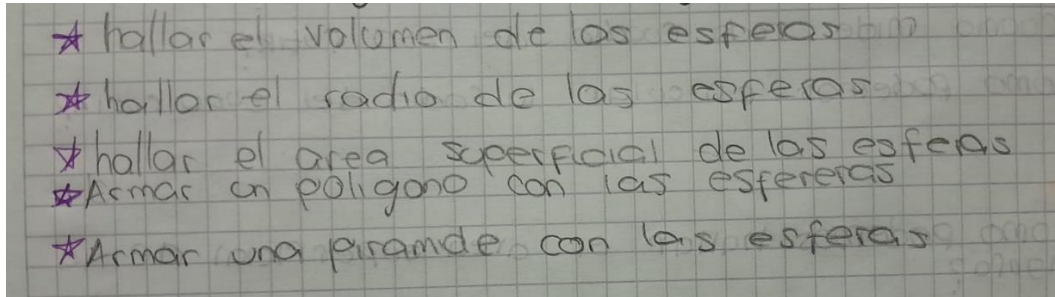 ★ hallar el volumen de las esferas
★ hallar el radio de las esferas
★ hallar el area superficial de las esferas
★ Armar un poligono con las esfereras
★ Armar una piramde con las esferas